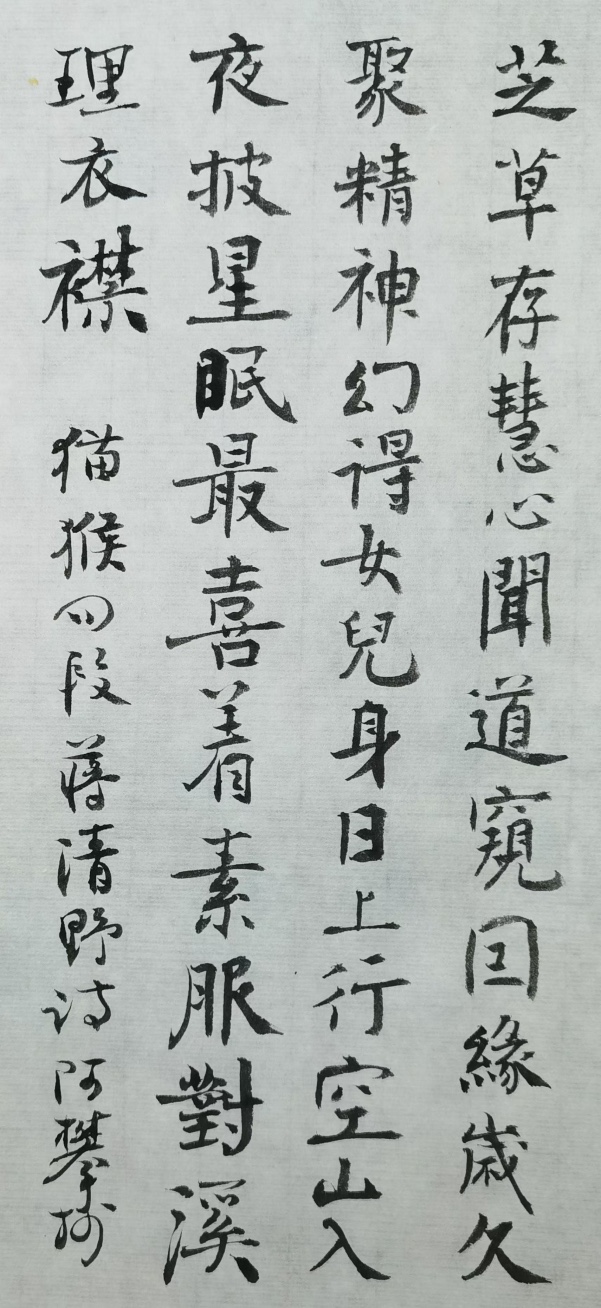 芝草存慧心聞道窺因緣歲久
聚精神幻得女兒身日上行空山入
夜披星眠最喜着素服對溪
理衣襟 猫猴四段蔣清野詩阿攀抄